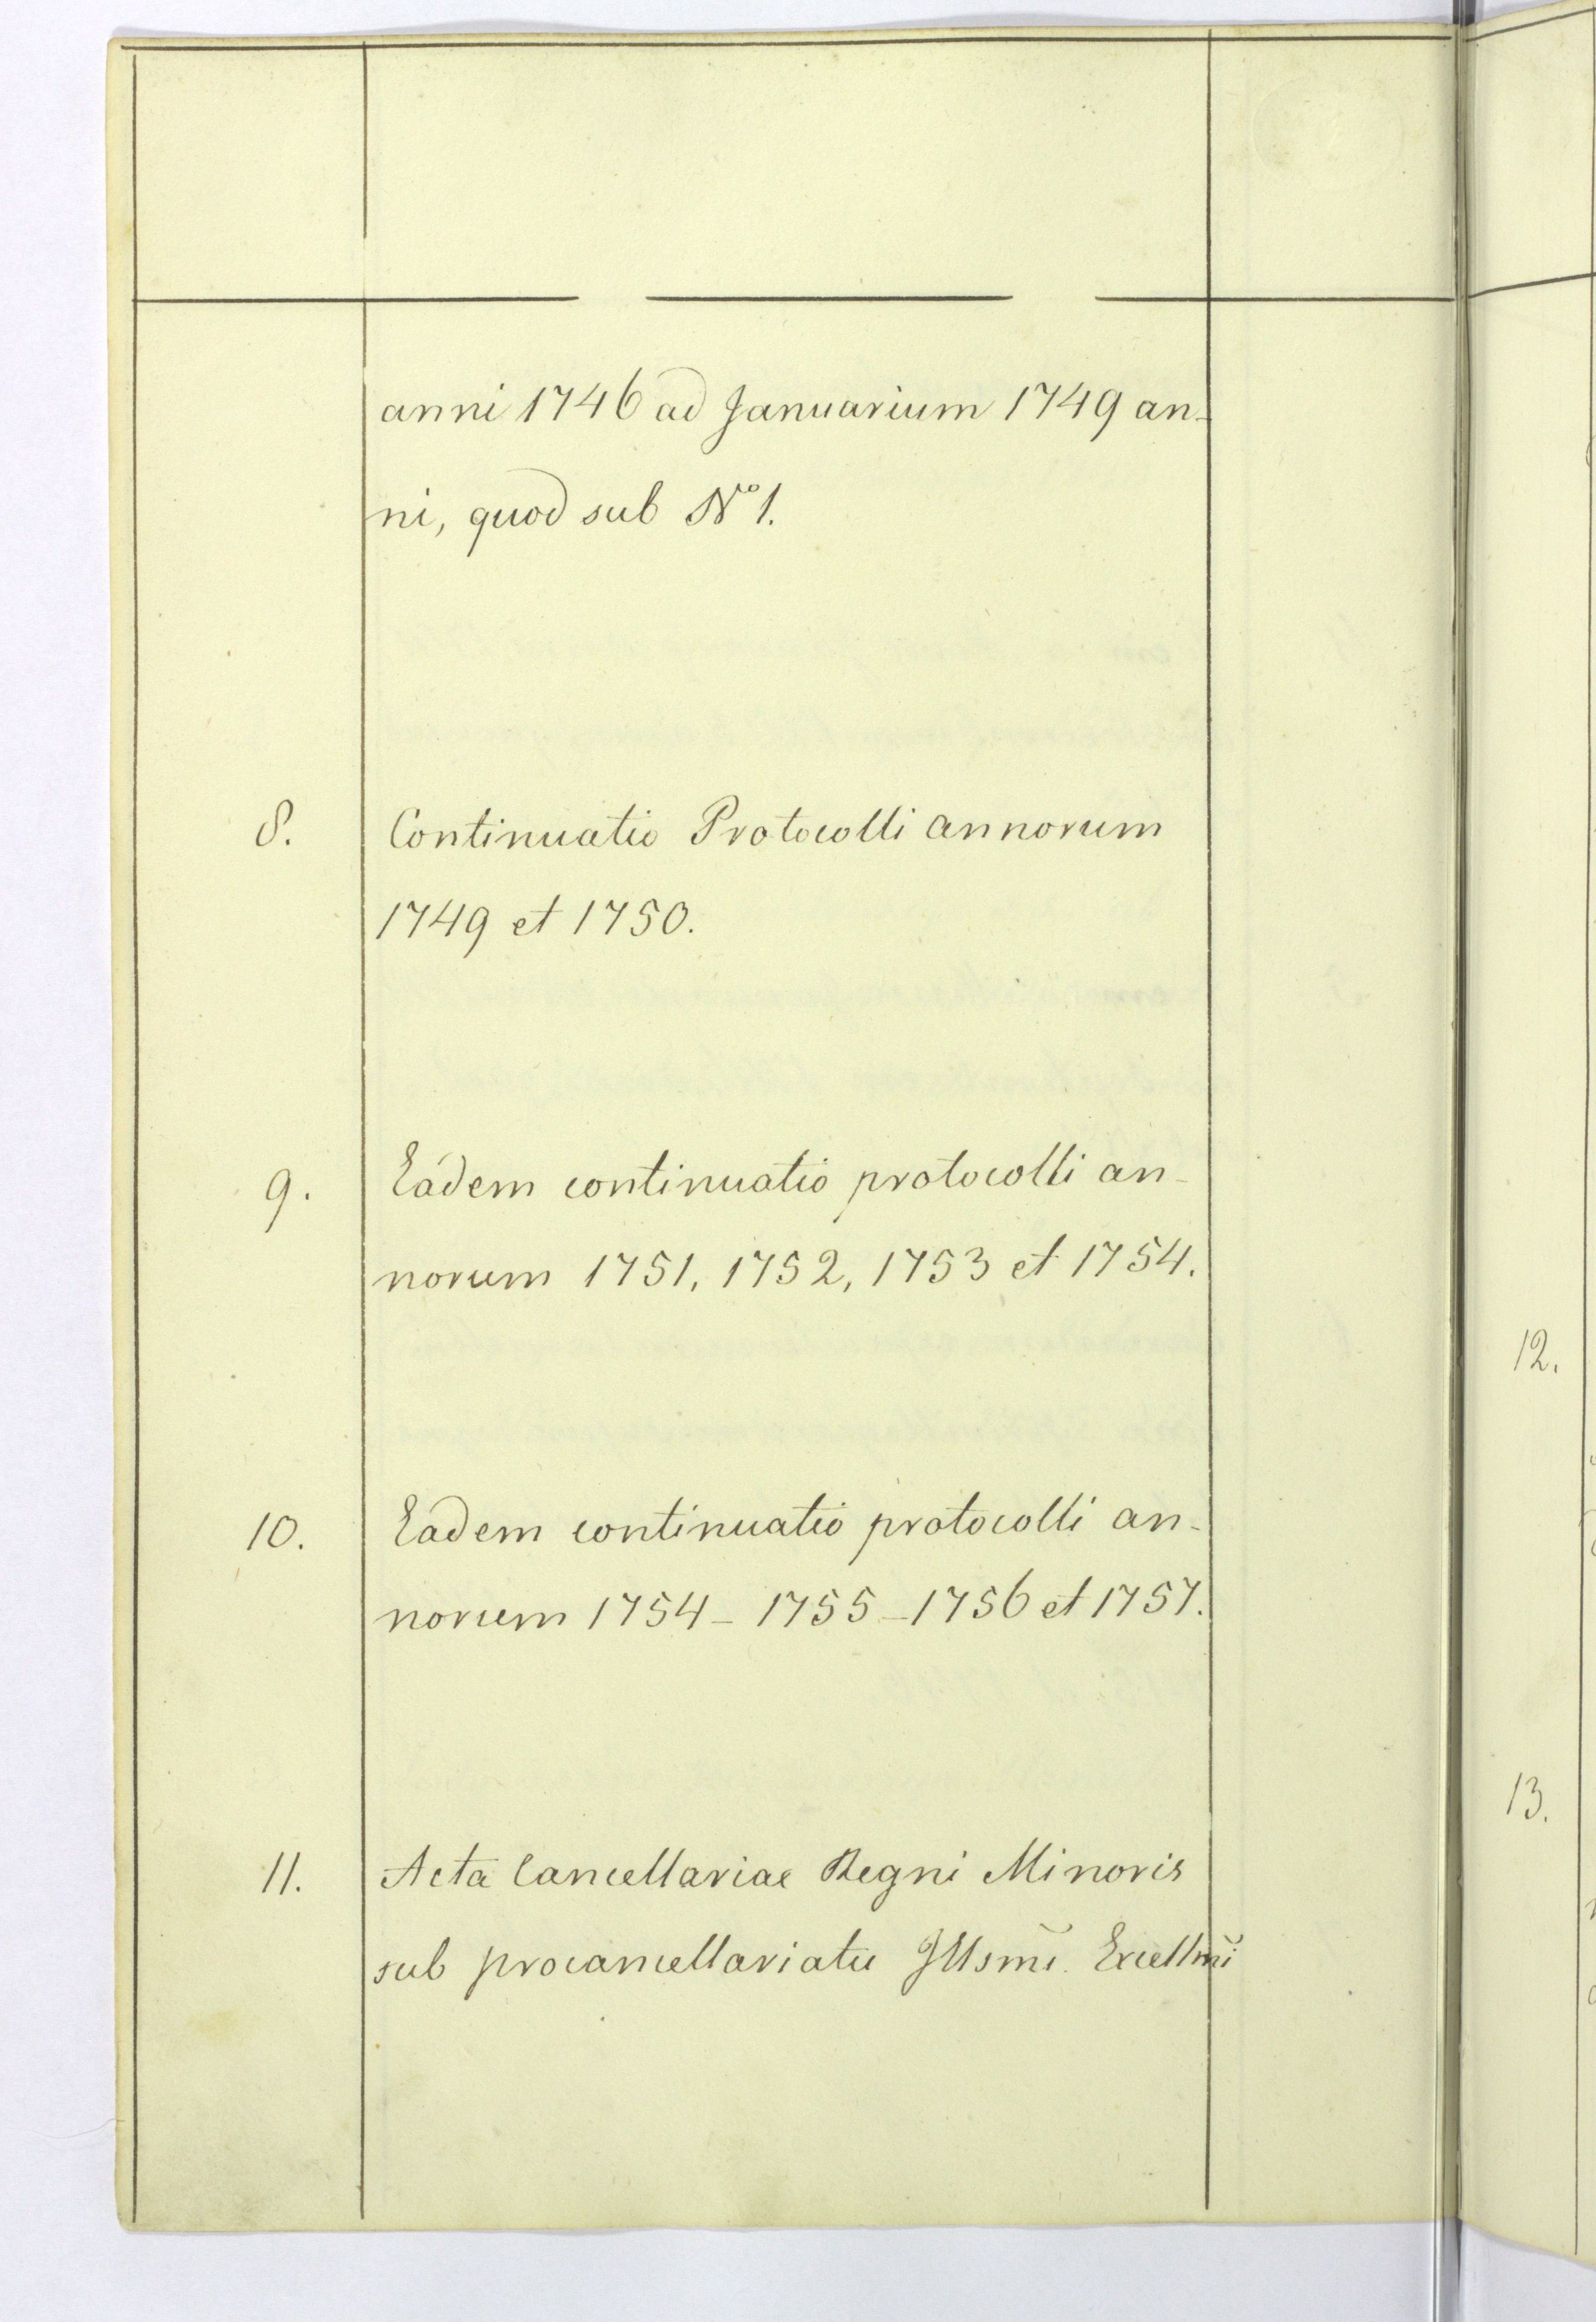 anni 1746 ad Januarium 1749 an-
ni, quod sub Nº 1.
8. Continuatio Protocolli annorum
1749 et 1750.
9. Eadem continuatio protocolli an-
norum 1751, 1752, 1753 et 1754.
10. Eadem continuatio protocolli an-
norum 1754 - 1755 - 1756 et 1757.
11. Acta Cancellariae Regni Minoris
sub procancellariatu Jllsmi. Excellmi
12.
13.